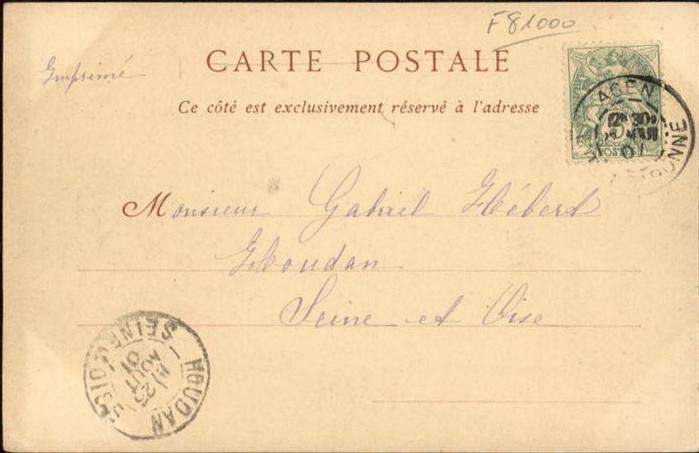 F81000
Imprimé
CARTE POSTALE
Ce côté est exclusivement réservé à l'adresse
Monsieur Gabriel Hébert
Houdan
Seine et Oise
AGEN
12 30
01
POSTES
GARONNE
HOUDAN
25
AOUT
01
SEINE-ET-OISE